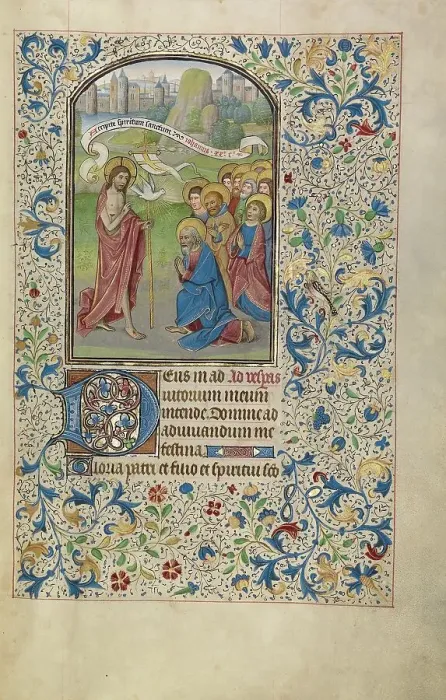 Accipite spiritum sanctum
Deus in ad Ad vespas
iutorium meum
intende. Domine ad
adiuuandum me
festina.
Gloria patri et filio et spiritui sco